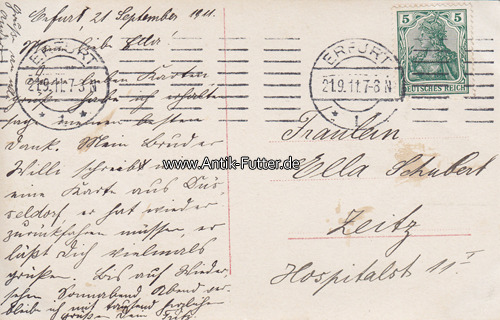 Erfurt, 21 September 1911.
Meine liebe Ella!
haben Karten
habe ich erhalten
sage meinen besten
Dank. Mein Bruder
Willi schreibt
eine Karte aus Düs-
seldorf, er hat wieder
zurückfahren müssen, er
läßt Dich vielmals
grüßen. Bis auf Wieder
sehen Sonnabend Abend ver-
bleibe ich mit tausend herzlichen
Grüßen Dein
ERFURT
21.9.11.7-8 N
* 1 *
ERFURT
21.9.11.7-8 N
* 1 *
5 5
DEUTSCHES REICH
www.Antik-Futter.de
Fräulein
Ella Schubert
Zeitz
Hospitalst 11 I